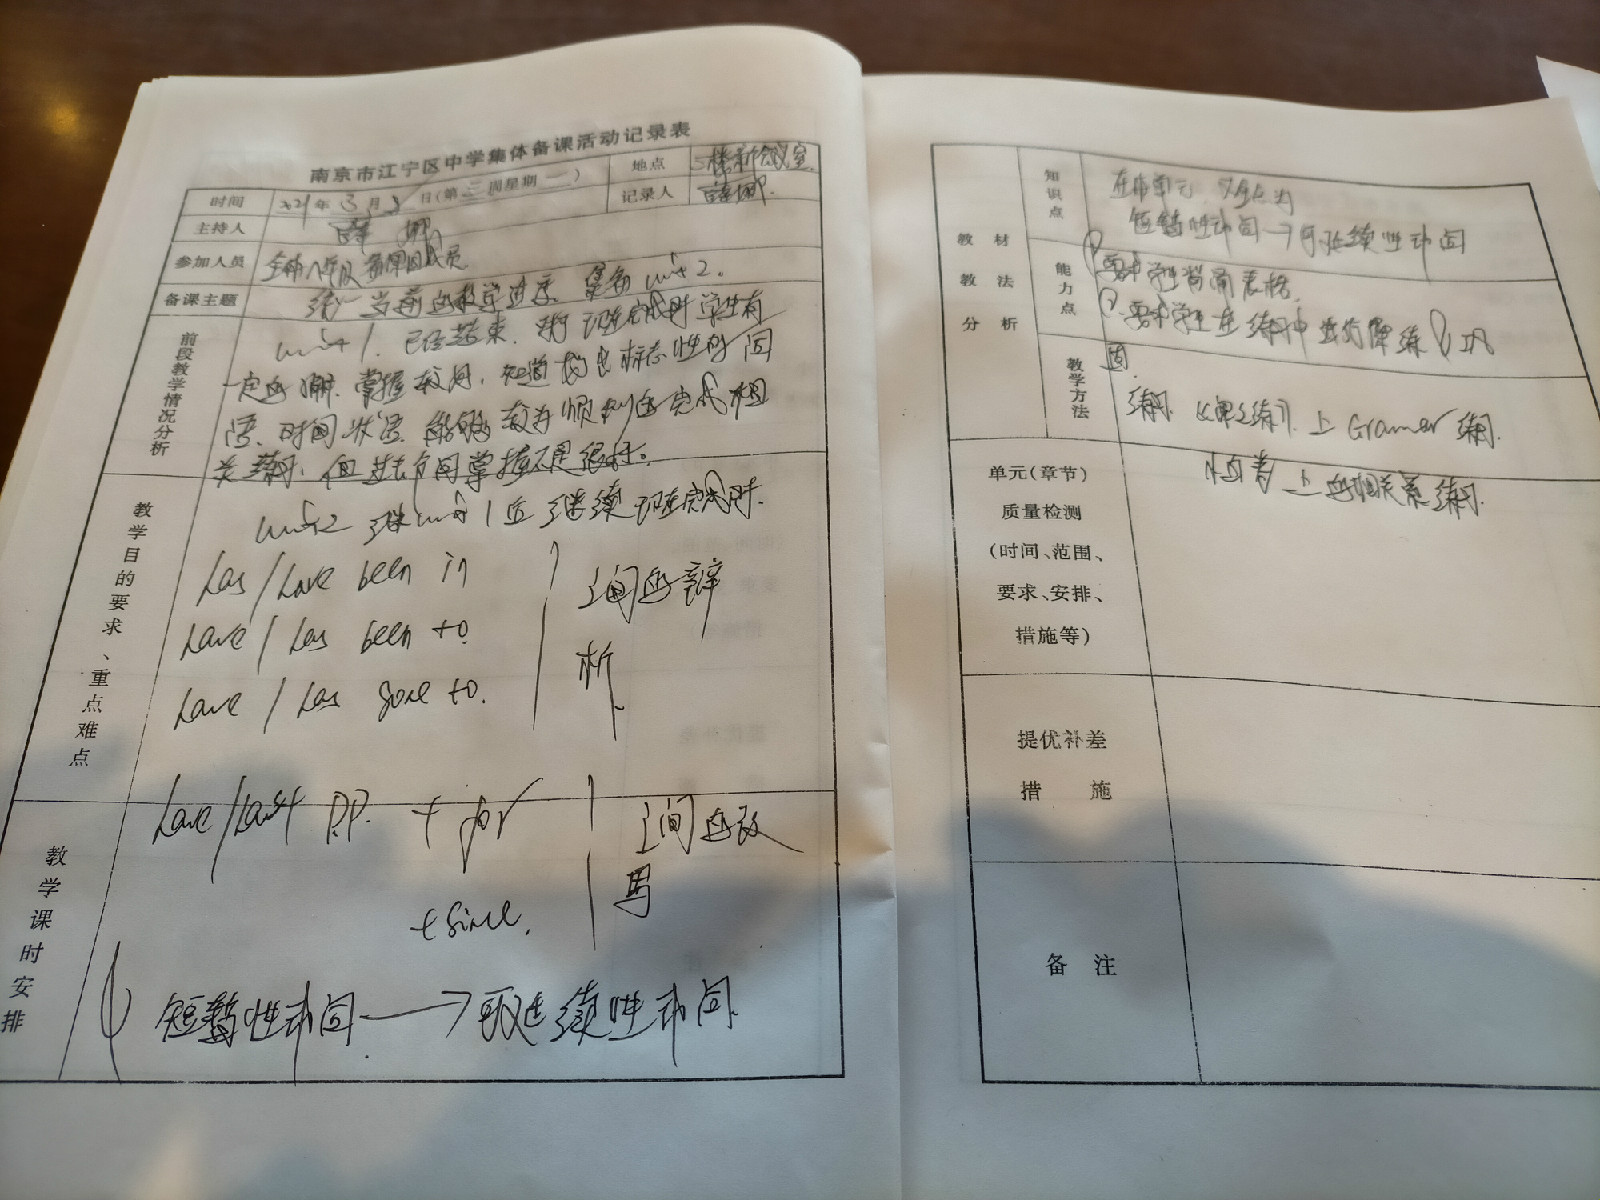 南京市江宁区中学集体备课活动记录表
时间 2021年3月 日(第三周星期一) 地点 5楼新会议室
主持人 薛娜 记录人 薛娜
参加人员 全体八年级备课组成员
备课主题 统一当前的教学进度,集备unit2.
前段教学情况分析
unit 1. 已经结束, 现在完成时学生有
一定的 掌握较好, 知道 标志性的词
语、时间状语, 能够 完成相
关练习, 但过去分词掌握不是很好。
教学目的要求、重点难点
unit2 unit 1 继续现在完成时.
has / have been in
have / has been to. 之间的辩
析.
have / has gone to.
教学课时安排
have/has+ P.P. + for 之间的改
写
+ since.
短暂性动词→延续性动词.
教材教法分析
知识点
在本单元,
短暂性动词→延续性动词
能力点
要求学生背诵表格.
要求学生在练习中 巩
固.
教学方法
练习. 上 Grammer 练习.
单元(章节)
质量检测
(时间、范围、
要求、安排、
措施等)
上的相关练习.
提优补差
措施
备注